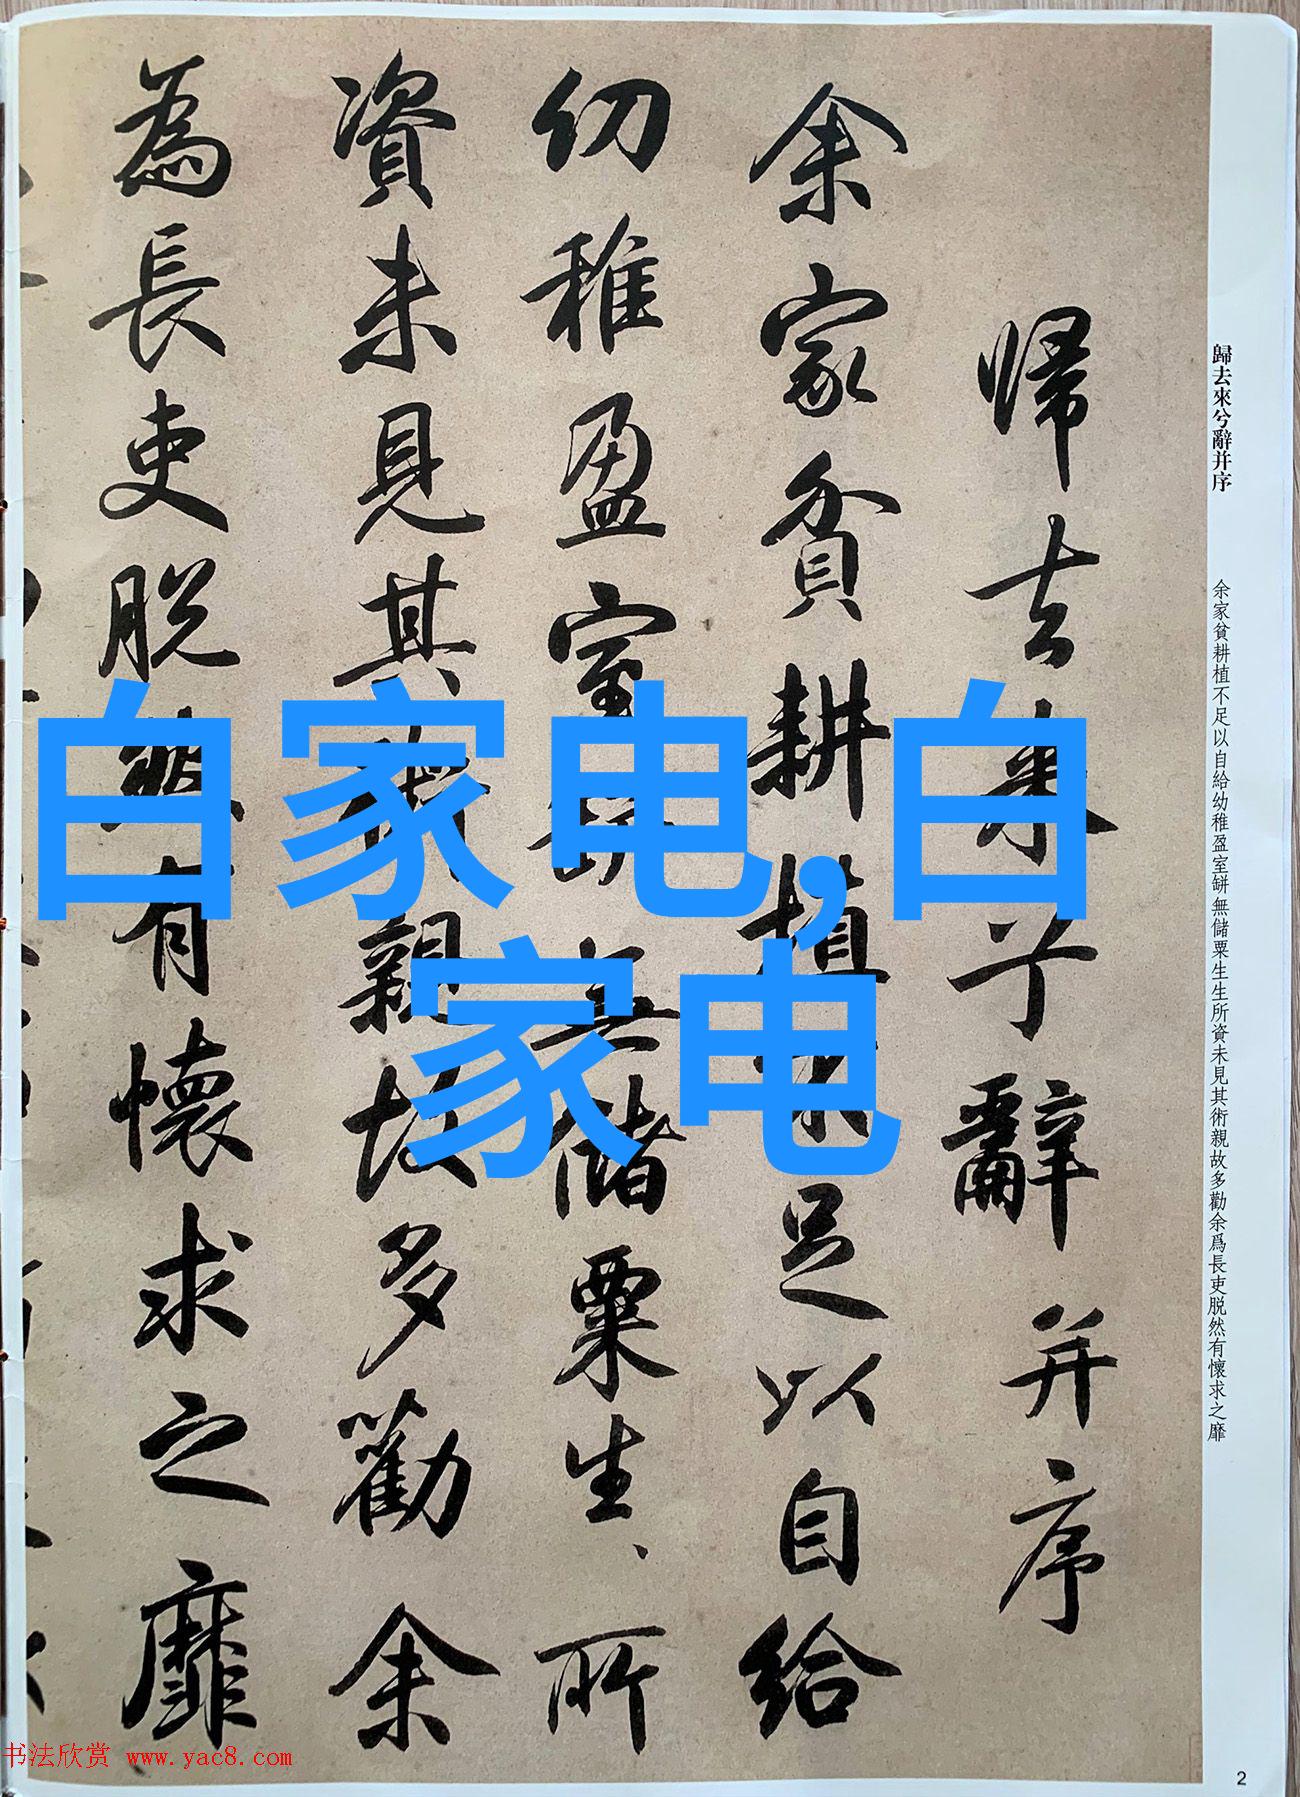 歸去來兮辭并序
余家貧耕植不足以自給幼稚盈室缾無儲粟生生所資未見其術親故多勸余爲長吏脱然有懷求之靡
歸去来兮辭并序
余家貧耕植不足以自給
幼稚盈室缾無儲粟生、所
資未見其術親故多勸余
為長吏脱然有懷求之靡
白家电,白
家电
书法欣赏 www.yac8.com
2